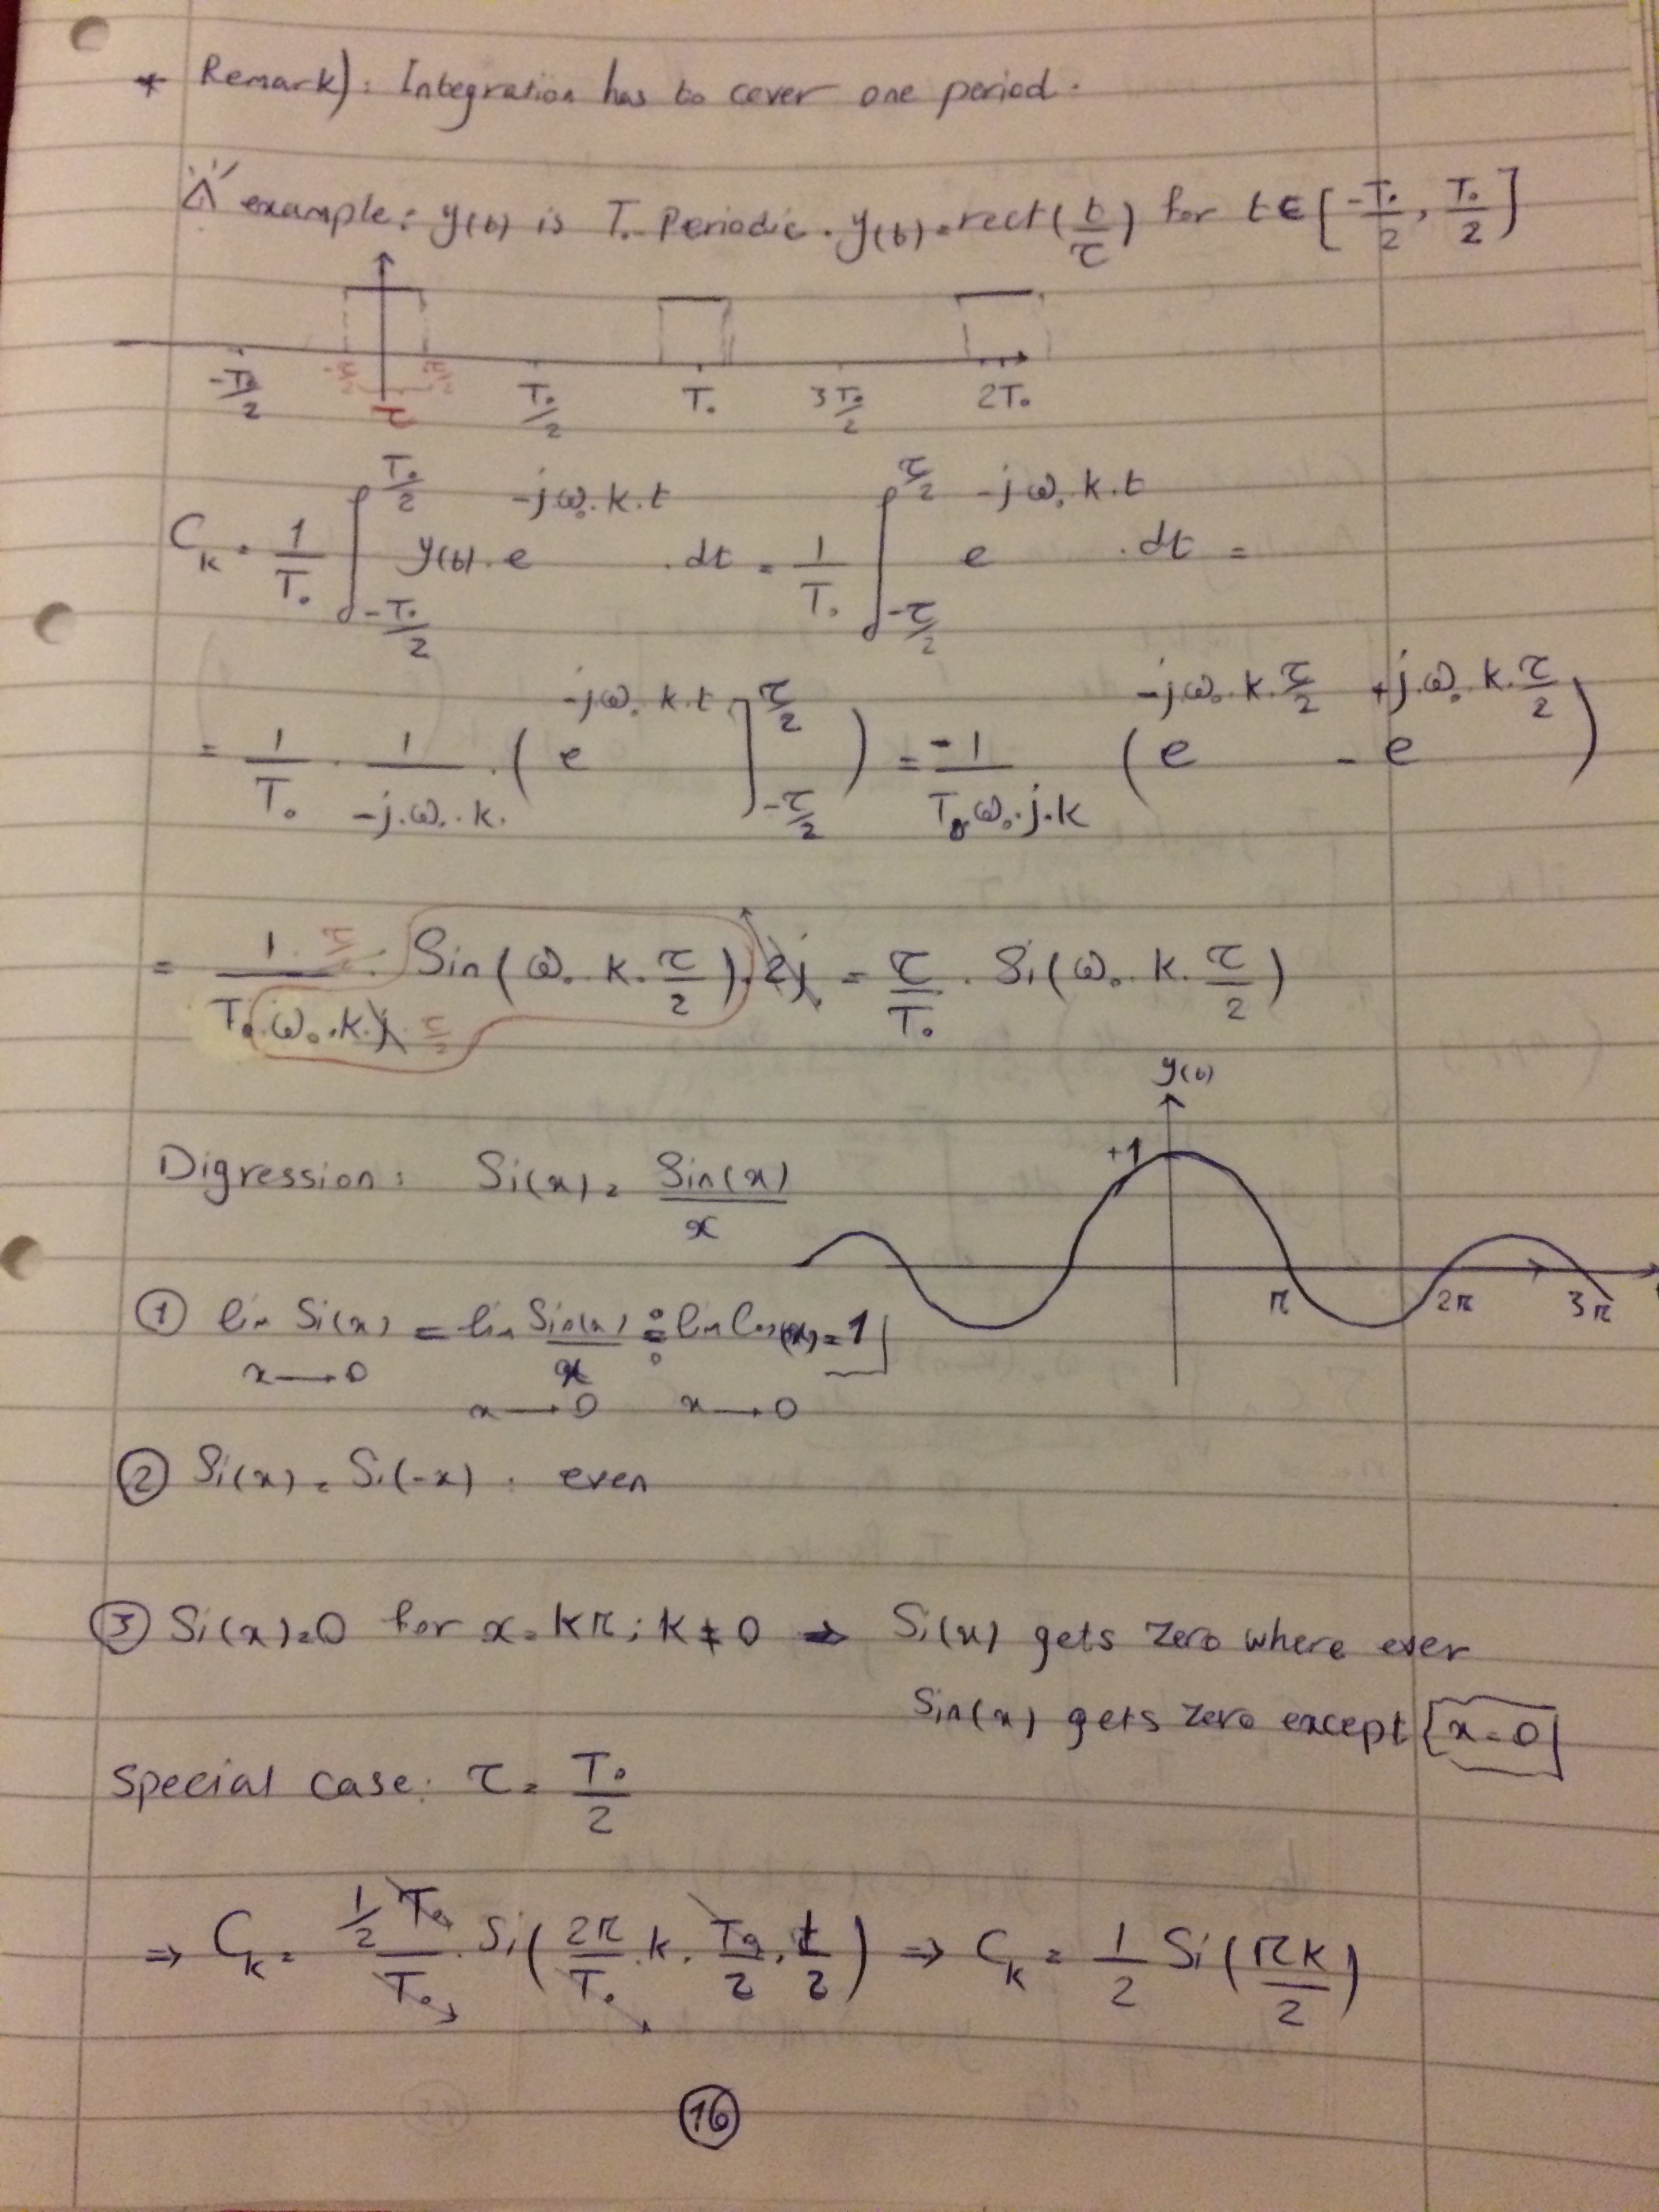 * Remark): Integration has to cover one period.
example: y(t) is T₀ Periodic. y(t) = rect(t/τ) for t ∈ [-T₀/2, T₀/2]
-T₀/2 -τ/2 τ τ/2 T₀/2 T₀ 3T₀/2 2T₀
C_k = 1/T₀ ∫_{-T₀/2}^{T₀/2} y(t) . e^{-jω₀.k.t} . dt = 1/T₀ ∫_{-τ/2}^{τ/2} e^{-jω₀.k.t} . dt =
= 1/T₀ . 1/(-j.ω₀.k.) . ( e^{-jω₀.k.t} ]_{-τ/2}^{τ/2} ) = -1/(T₀.ω₀.j.k) ( e^{-jω₀.k.τ/2} - e^{+j.ω₀.k.τ/2} )
= (1 . τ/2)/(T₀.ω₀.k.j . τ/2) . Sin(ω₀.k.τ/2) . 2j = τ/T₀ . Si(ω₀.k.τ/2)
y(t)
Digression: Si(x) = Sin(x)/x
+1
π 2π 3π
① lim_{x→0} Si(x) = lim_{x→0} Sin(x)/x =^{0}_{0} lim_{x→0} Cos(x) = 1
② Si(x) = Si(-x) . even
③ Si(x) = 0 for x = kπ ; k ≠ 0 ⇒ Si(x) gets zero where ever
Sin(x) gets zero except [x = 0]
Special case: τ = T₀/2
⇒ C_k = (1/2 T₀)/T₀ . Si( 2π/T₀ . k . T₀/2 . 1/2 ) ⇒ C_k = 1/2 Si( πk/2 )
16